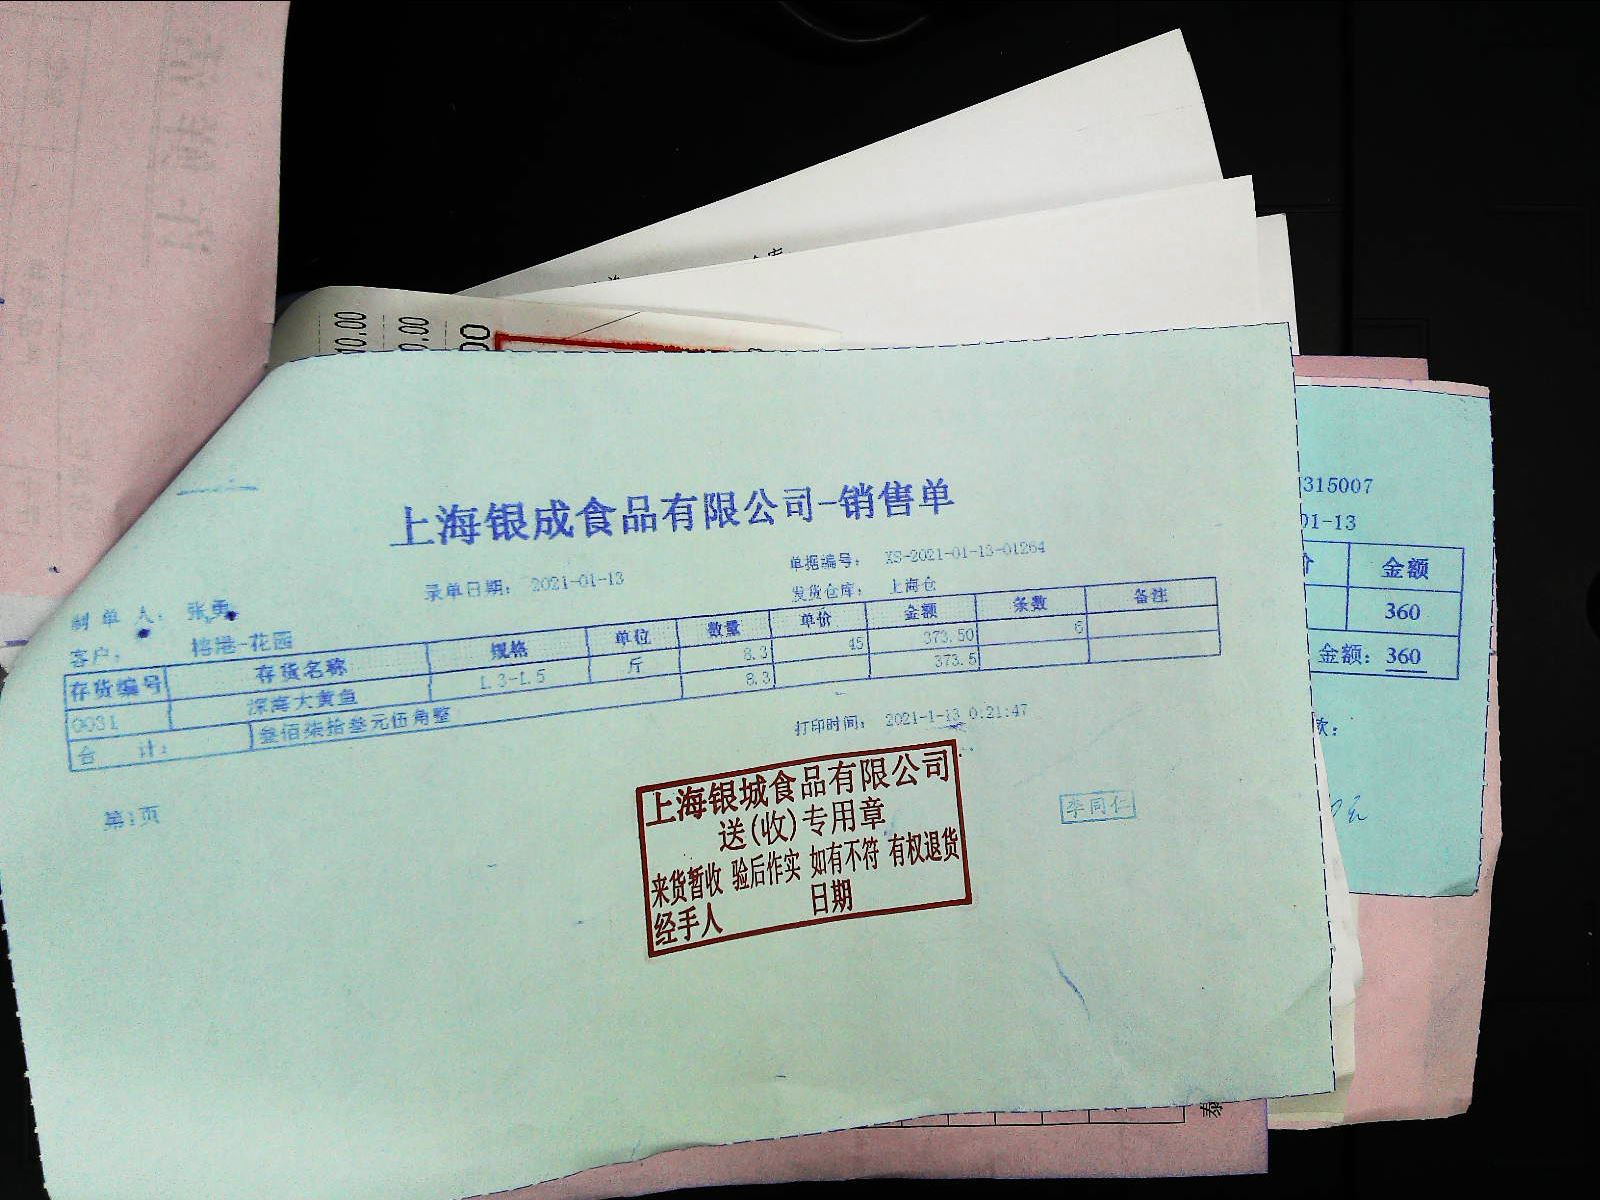 上海银成食品有限公司-销售单
单据编号： XS-2021-01-13-01264
录单日期： 2021-01-13
发货仓库： 上海仓
制单人： 张勇
客户： 榕港-花园
存货编号 存货名称 规格 单位 数量 单价 金额 条数 备注
0031 深海大黄鱼 1.3-1.5 斤 8.3 45 373.50 6
合 计： 叁佰柒拾叁元伍角整 8.3 373.5
打印时间： 2021-1-13 0:21:47
第1页
李同仁
上海银城食品有限公司
送(收)专用章
来货暂收 验后作实 如有不符 有权退货
经手人 日期
315007
01-13
金额
360
金额：360
款：
10.00
0.00
00
泰